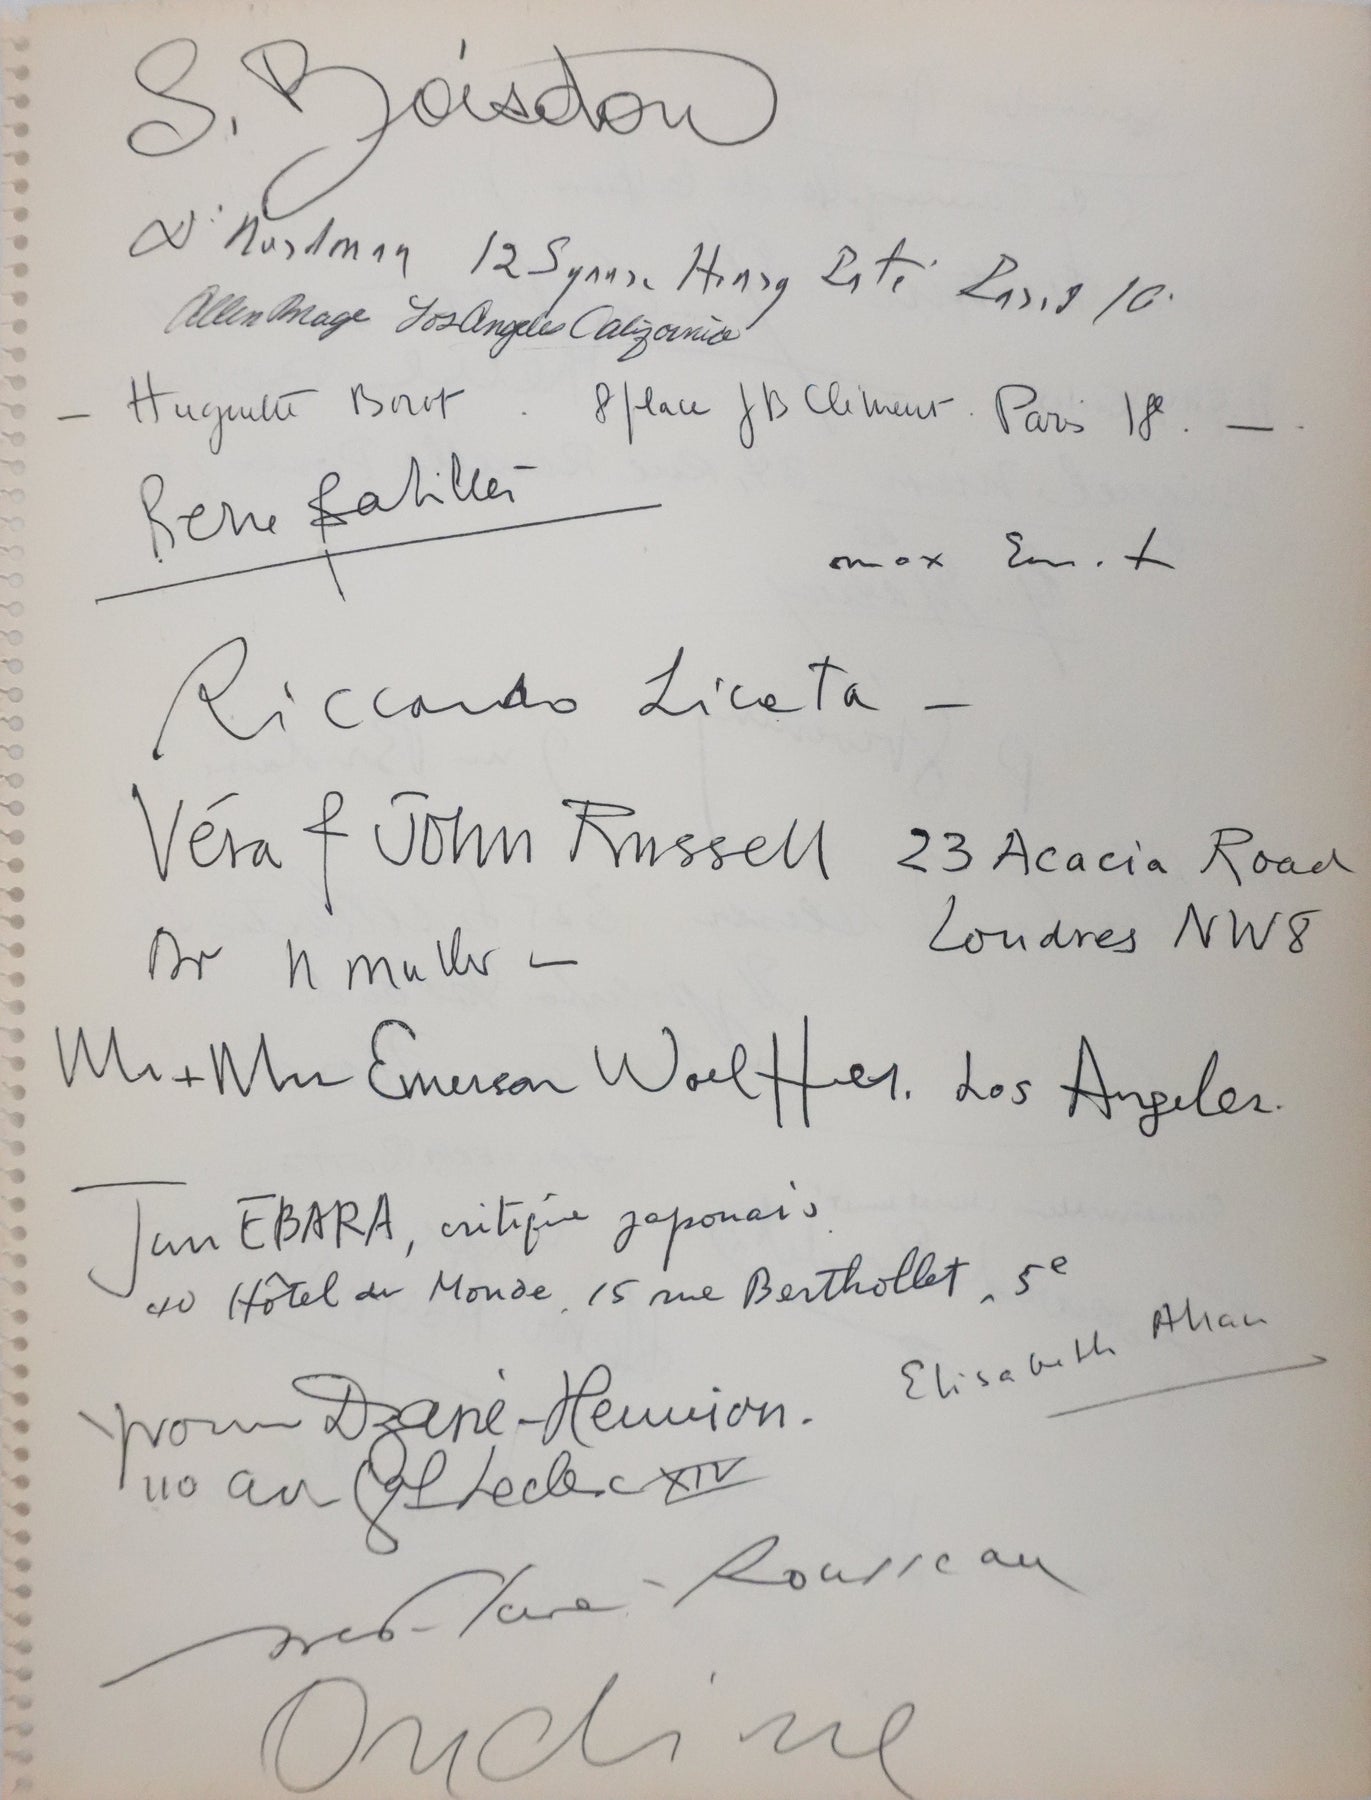 S. Boisdon
Dr Nordman 12 Square Henry Paté Paris 16
Allen Mage Los Angeles California
— Huguette Borot . 8 place JB Clément . Paris 18e . —
René
max Ernst
Riccardo Licata —
Véra & John Russell 23 Acacia Road
Londres NW8
Dr H Muller —
Mr + Mrs Emerson Woelffer. Los Angeles.
Jun EBARA, critique japonais
Hôtel du Monde, 15 rue Berthollet, 5e
Elisabeth
Yvonne Dzané-Hennion.
110 av Gl Leclerc XIV
Rousseau
Ondine